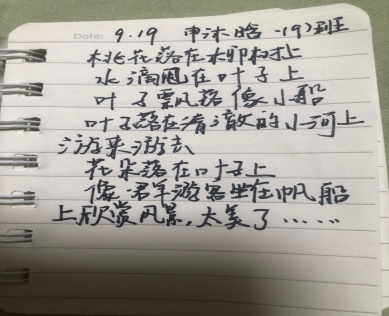 Date: 9.19 申沐晗 一(9)班
桃花落在水卯村上
水滴甩在叶子上
叶子飘落像小船
叶子落在清澈的小河上
游来游去
花朵落在叶子上
像一群游客坐在帆船
上欣赏风景,太美了……